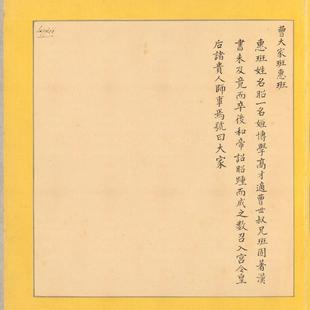 曹大家班惠班
惠班姓名昭一名姬博學高才適曹世叔兄班固著漢
書未及竟而卒後和帝詔昭踵而成之數召入宮令皇
后諸貴人師事焉號曰大家